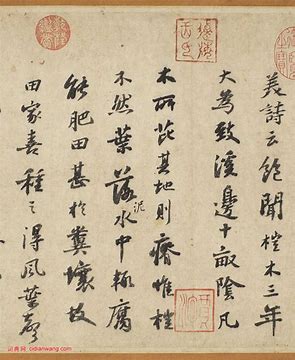 美詩云飽聞榿木三年
大為致溪邊十畝陰凡
木所芘其地則瘠惟榿
不然葉落泥水中輒腐
能肥田甚於糞壤故
田家喜種之得風葉聲
词典网 cidianwang.com